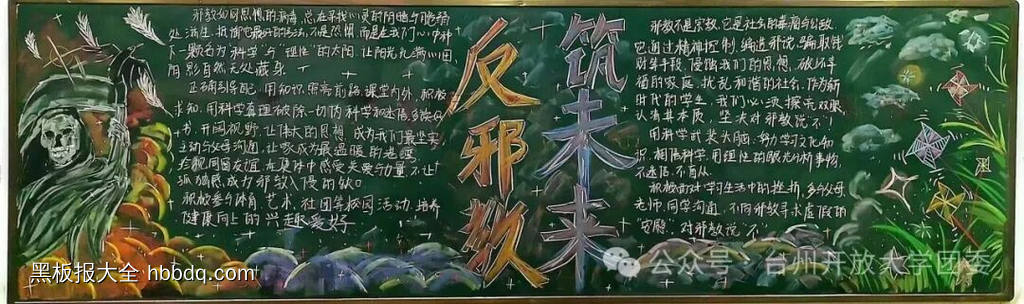 邪教如同思想的病毒,总在寻找心灵的阴暗与脆弱
处滋生,抵御它最好的方法,不是恐惧,而是在我们心中种
下一颗名为"科学"与"理性"的太阳,让阳光充满心田,
阴影自然无处藏身
正确引导,用知识照亮前路,课堂内外,积极
求知,用科学真理破除一切伪科学和迷信,多读好
书,开阔视野,让伟大的思想,成为我们最坚实
主动与父母沟通,让家成为最温暖的港湾
珍视同窗友谊,在集体中感受关爱与力量,不让
孤独感成为邪教入侵的
积极参与体育、艺术、社团等校园活动,培养
健康向上的兴趣爱好
反邪教
筑未来
邪教不是宗教,它是社会的毒瘤与公敌
它通过精神控制、编造邪说、骗取钱
财等手段,侵蚀我们的思想,破坏幸
福的家庭,扰乱和谐的社会,作为新
时代的学生,我们必须擦亮双眼
认清其本质,坚决对邪教说不!
用科学武装头脑,努力学习文化知
识,相信科学,用理性的眼光分析事物,
不迷信,不盲从
积极面对学习生活中的挫折,多与父母
老师,同学沟通,不向邪教寻求虚假的
"安慰",对邪教说"不"
黑板报大全 hbbdq.com
公众号·台州开放大学团委